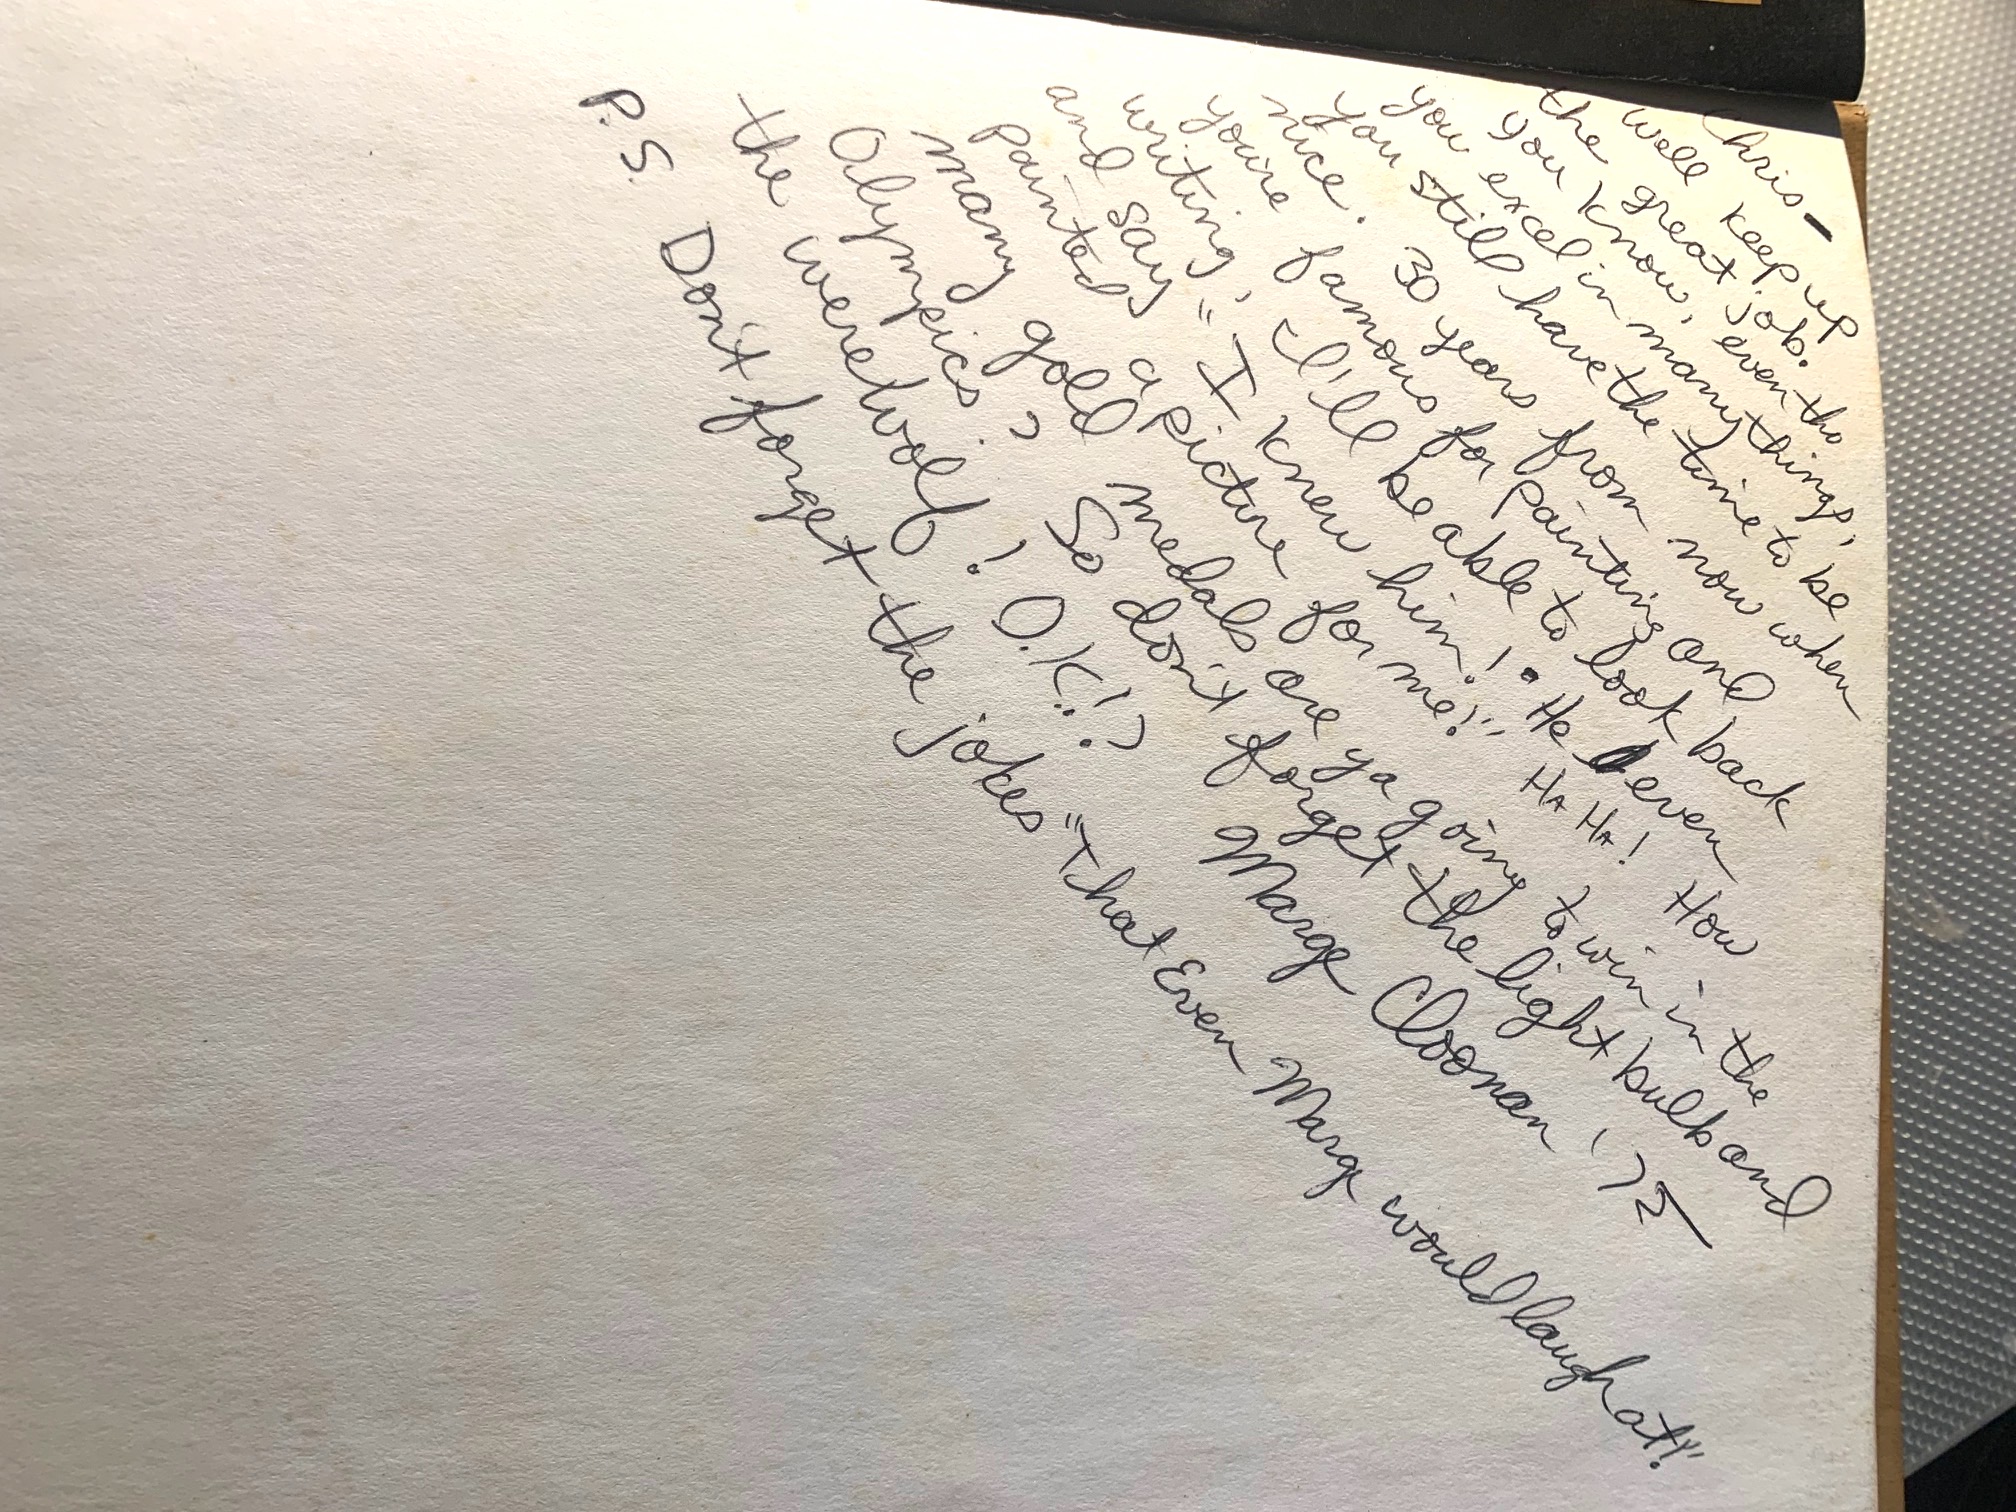 Chris-
Well keep up
the great job.
You know, even tho
you excel in many things,
you still have the time to be
nice. 30 years from now when
you're famous for painting and
writing, I'll be able to look back
and say "I knew him! He even
painted a picture for me!" HA HA! How
many gold medals are ya going to win in the
Olympics? So don't forget the light bulb and
the werewolf! O.K!? Marge Cloonan '75
P.S. Don't forget the jokes "that Even Marge would laugh at!"